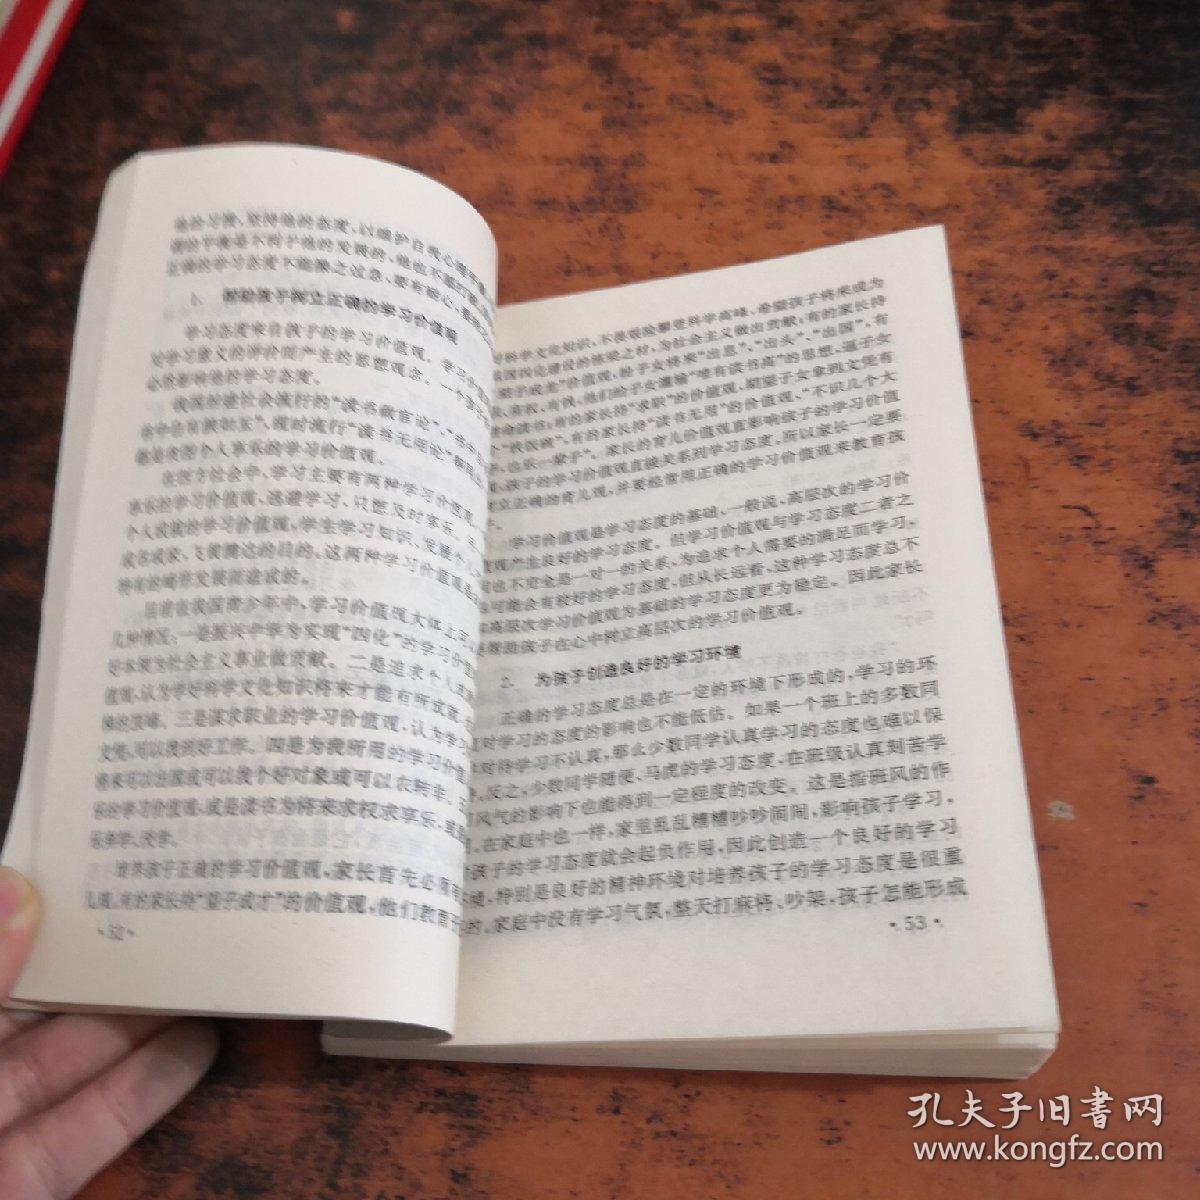 他的习惯,坚持他的态度,以维护自我心理平衡,
正确的学习态度不能操之过急,要有耐心,
1. 帮助孩子树立正确的学习价值观
学习态度来自孩子的学习价值观。学习价值
对学习意义的评价而产生的思想观念。一个孩子
必然影响他的学习态度。
我国的旧社会流行的“读书做官论”,“书中
都是贪图个人享乐的学习价值观。
在西方社会中,学习主要有两种学习价值观,
享乐的学习价值观,逃避学习,只想及时享乐。
个人成就的学习价值观,学生学习知识、发展个人
成名成家、飞黄腾达的目的。这两种学习价值观
目前在我国青少年中,学习价值观大体上可以
几种情况:一是振兴中华为实现“四化”的学习价值
好本领为社会主义事业做贡献。二是追求个人
值观,认为学好科学文化知识将来才能有所成就,
三是谋求职业的学习价值观,认为学习
文凭,可以找到好工作。四是为我所用的学习价值
将来可以出国或可以找个好对象或可以农转非。五
乐的学习价值观,或是读书为将来求权求享乐,或
培养孩子正确的学习价值观,家长首先必须有
儿观。有的家长持“望子成才”的价值观,他们教育
·52·
科学文化知识,不畏艰险攀登科学高峰,希望孩子将来成为
国四化建设的栋梁之材,为社会主义做出贡献;有的家长持
望子成龙”价值观,给子女将来“出息”、“出头”、“出国”,有
有权、有钱,他们给子女灌输“唯有读书高”的思想,逼子女
命读书;有的家长持“求职”的价值观,期望子女拿到文凭有
个“铁饭碗”,有的家长持“读书无用”的价值观、“不识几个大
字,也乐一辈子”。家长的育儿价值观直影响孩子的学习价值
孩子的学习价值观直接关系到学习态度,所以家长一定要
树立正确的育儿观,并要经常用正确的学习价值观来教育孩
学习价值观是学习态度的基础,一般说,高层次的学习价
观产生良好的学习态度。但学习价值观与学习态度二者之
也不完全是一对一的关系,为追求个人需要的满足而学习,
也可能会有较好的学习态度,但从长远看,这种学习态度总不
高层次学习价值观为基础的学习态度更为稳定。因此家长
帮助孩子在心中树立高层次的学习价值观。
2. 为孩子创造良好的学习环境
正确的学习态度总是在一定的环境下形成的,学习的环
对学习的态度的影响也不能低估。如果一个班上的多数同
对待学习不认真,那么少数同学认真学习的态度也难以保
反之,少数同学随便、马虎的学习态度,在班级认真刻苦学
风气的影响下也能得到一定程度的改变。这是指班风的作
在家庭中也一样,家里乱乱糟糟吵吵闹闹,影响孩子学习,
孩子的学习态度就会起负作用,因此创造一个良好的学习
境,特别是良好的精神环境对培养孩子的学习态度是很重
的。家庭中没有学习气氛,整天打麻将、吵架,孩子怎能形成
·53·
孔夫子旧書网
www.kongfz.com